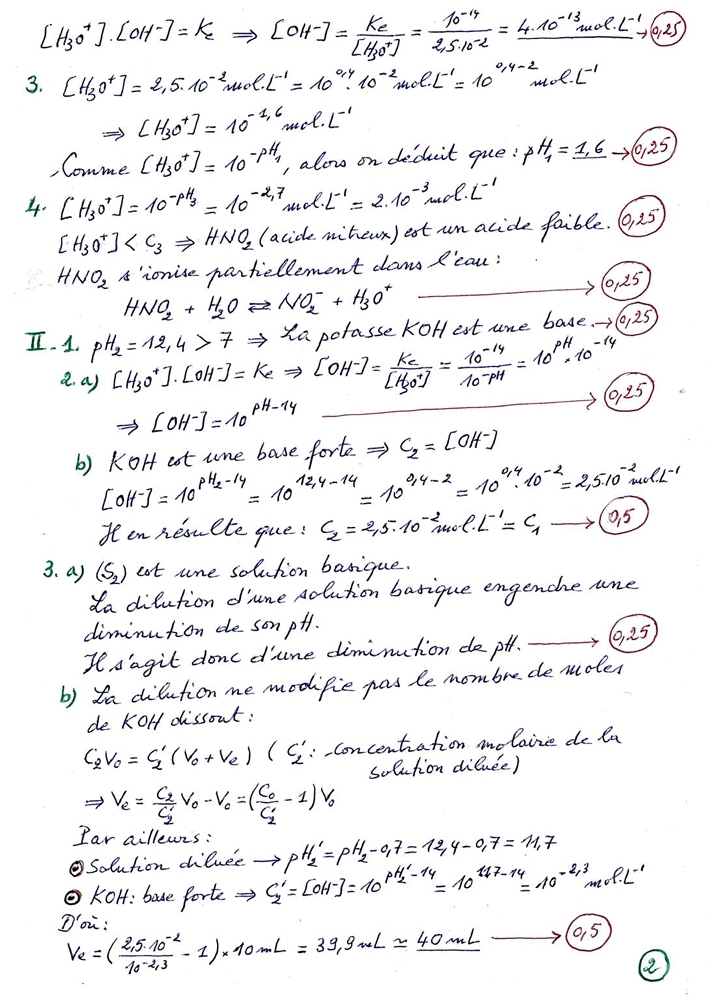 [H₃O⁺].[OH⁻] = Ke ⇒ [OH⁻] = Ke/[H₃O⁺] = 10⁻¹⁴/2,5.10⁻² = 4.10⁻¹³ mol.L⁻¹ → 0,25
3. [H₃O⁺] = 2,5.10⁻² mol.L⁻¹ = 10^0,4.10⁻² mol.L⁻¹ = 10^0,4-2 mol.L⁻¹
⇒ [H₃O⁺] = 10^-1,6 mol.L⁻¹
Comme [H₃O⁺] = 10^-pH₁, alors on déduit que : pH₁ = 1,6 → 0,25
4. [H₃O⁺] = 10^-pH₃ = 10^-2,7 mol.L⁻¹ = 2.10⁻³ mol.L⁻¹
[H₃O⁺] < C₃ ⇒ HNO₂ (acide nitreux) est un acide faible. 0,25
HNO₂ s'ionise partiellement dans l'eau :
HNO₂ + H₂O ⇄ NO₂⁻ + H₃O⁺ → 0,25
II-1. pH₂ = 12,4 > 7 ⇒ La potasse KOH est une base. → 0,25
2. a) [H₃O⁺].[OH⁻] = Ke ⇒ [OH⁻] = Ke/[H₃O⁺] = 10⁻¹⁴/10^-pH = 10^pH × 10⁻¹⁴
⇒ [OH⁻] = 10^pH-14 → 0,25
b) KOH est une base forte ⇒ C₂ = [OH⁻]
[OH⁻] = 10^pH₂-14 = 10^12,4-14 = 10^0,4-2 = 10^0,4.10⁻² = 2,5.10⁻² mol.L⁻¹
Il en résulte que : C₂ = 2,5.10⁻² mol.L⁻¹ = C₁ → 0,5
3. a) (S₂) est une solution basique.
La dilution d'une solution basique engendre une
diminution de son pH.
Il s'agit donc d'une diminution de pH. → 0,25
b) La dilution ne modifie pas le nombre de moles
de KOH dissout :
C₂V₀ = C₂'(V₀ + Ve) (C₂' : concentration molaire de la
solution diluée)
⇒ Ve = C₂/C₂' V₀ - V₀ = (C₀/C₂' - 1) V₀
Par ailleurs :
Solution diluée → pH₂' = pH₂ - 0,7 = 12,4 - 0,7 = 11,7
KOH : base forte ⇒ C₂' = [OH⁻] = 10^pH₂'-14 = 10^11,7-14 = 10^-2,3 mol.L⁻¹
D'où :
Ve = (2,5.10⁻²/10^-2,3 - 1) × 10 mL = 39,9 mL ≃ 40 mL → 0,5
2